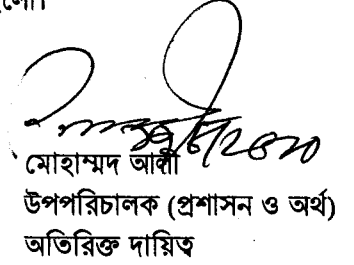 মোহাম্মদ আলী
উপপরিচালক (প্রশাসন ও অর্থ)
অতিরিক্ত দায়িত্ব